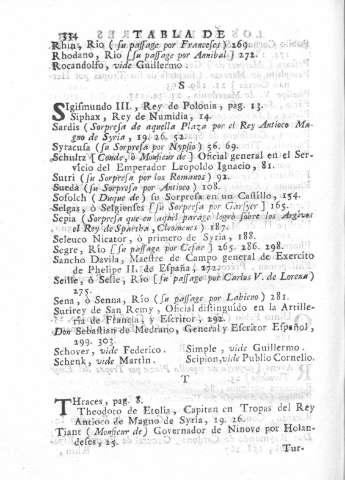 334 TABLA DE
Rhin, Rio (su passage por Franceses) 269.
Rhodano, Rio [su passage por Annibal] 272.
Rocandolfo, vide Guillermo.
S
SIgismundo III, Rey de Polonia, pag. 13.
Siphax, Rey de Numidia, 14.
Sardis (Sorpresa de aquella Plaza por el Rey Antioco Ma-
gno de Syria, 19. 26. 52.
Syracusa (su Sorpresa por Nypsio) 56. 69.
Schultz [Conde, ò Monsieur de] Oficial general en el Ser-
vicio del Emperador Leopoldo Ignacio, 81.
Sutri (su Sorpresa por los Romanos) 92.
Sueda (su Sorpresa por Antioco) 108.
Sofolch (Duque de) su Sorpresa en un Castillo, 154.
Selgas, ò Selgienses (su Sorpresa por Garlyer) 165.
Sepia (Sorpresa que en aquel parage logrò sobre los Argivos
el Rey de Spartha, Cleomenes) 187.
Seleuco Nicator, ò primero de Syria, 188.
Segre, Rio (su passage por Cesar) 265. 286. 298.
Sancho Davila, Maestre de Campo general de Exercito
de Phelipe II. de España, 272.
Seille, ò Selle, Rio (su passage por Carlos V. de Lorena)
275.
Sena, ò Senna, Rio (su passage por Labieno) 281.
Surirey de San Remy, Oficial distinguido en la Artille-
ria de Francia, y Escritor, 292.
Don Sebastian de Medrano, General y Escritor Español,
299. 303.
Schover, vide Federico. Simple, vide Guillermo.
Schenk, vide Martin. Scipion, vide Publio Cornelio.
T
THraces, pag. 8.
Theodoro de Etolia, Capitan en Tropas del Rey
Antioco de Magno de Syria, 19. 26.
Tiant (Monsieur de) Governador de Ninove por Holan-
deses, 25.
Tur-